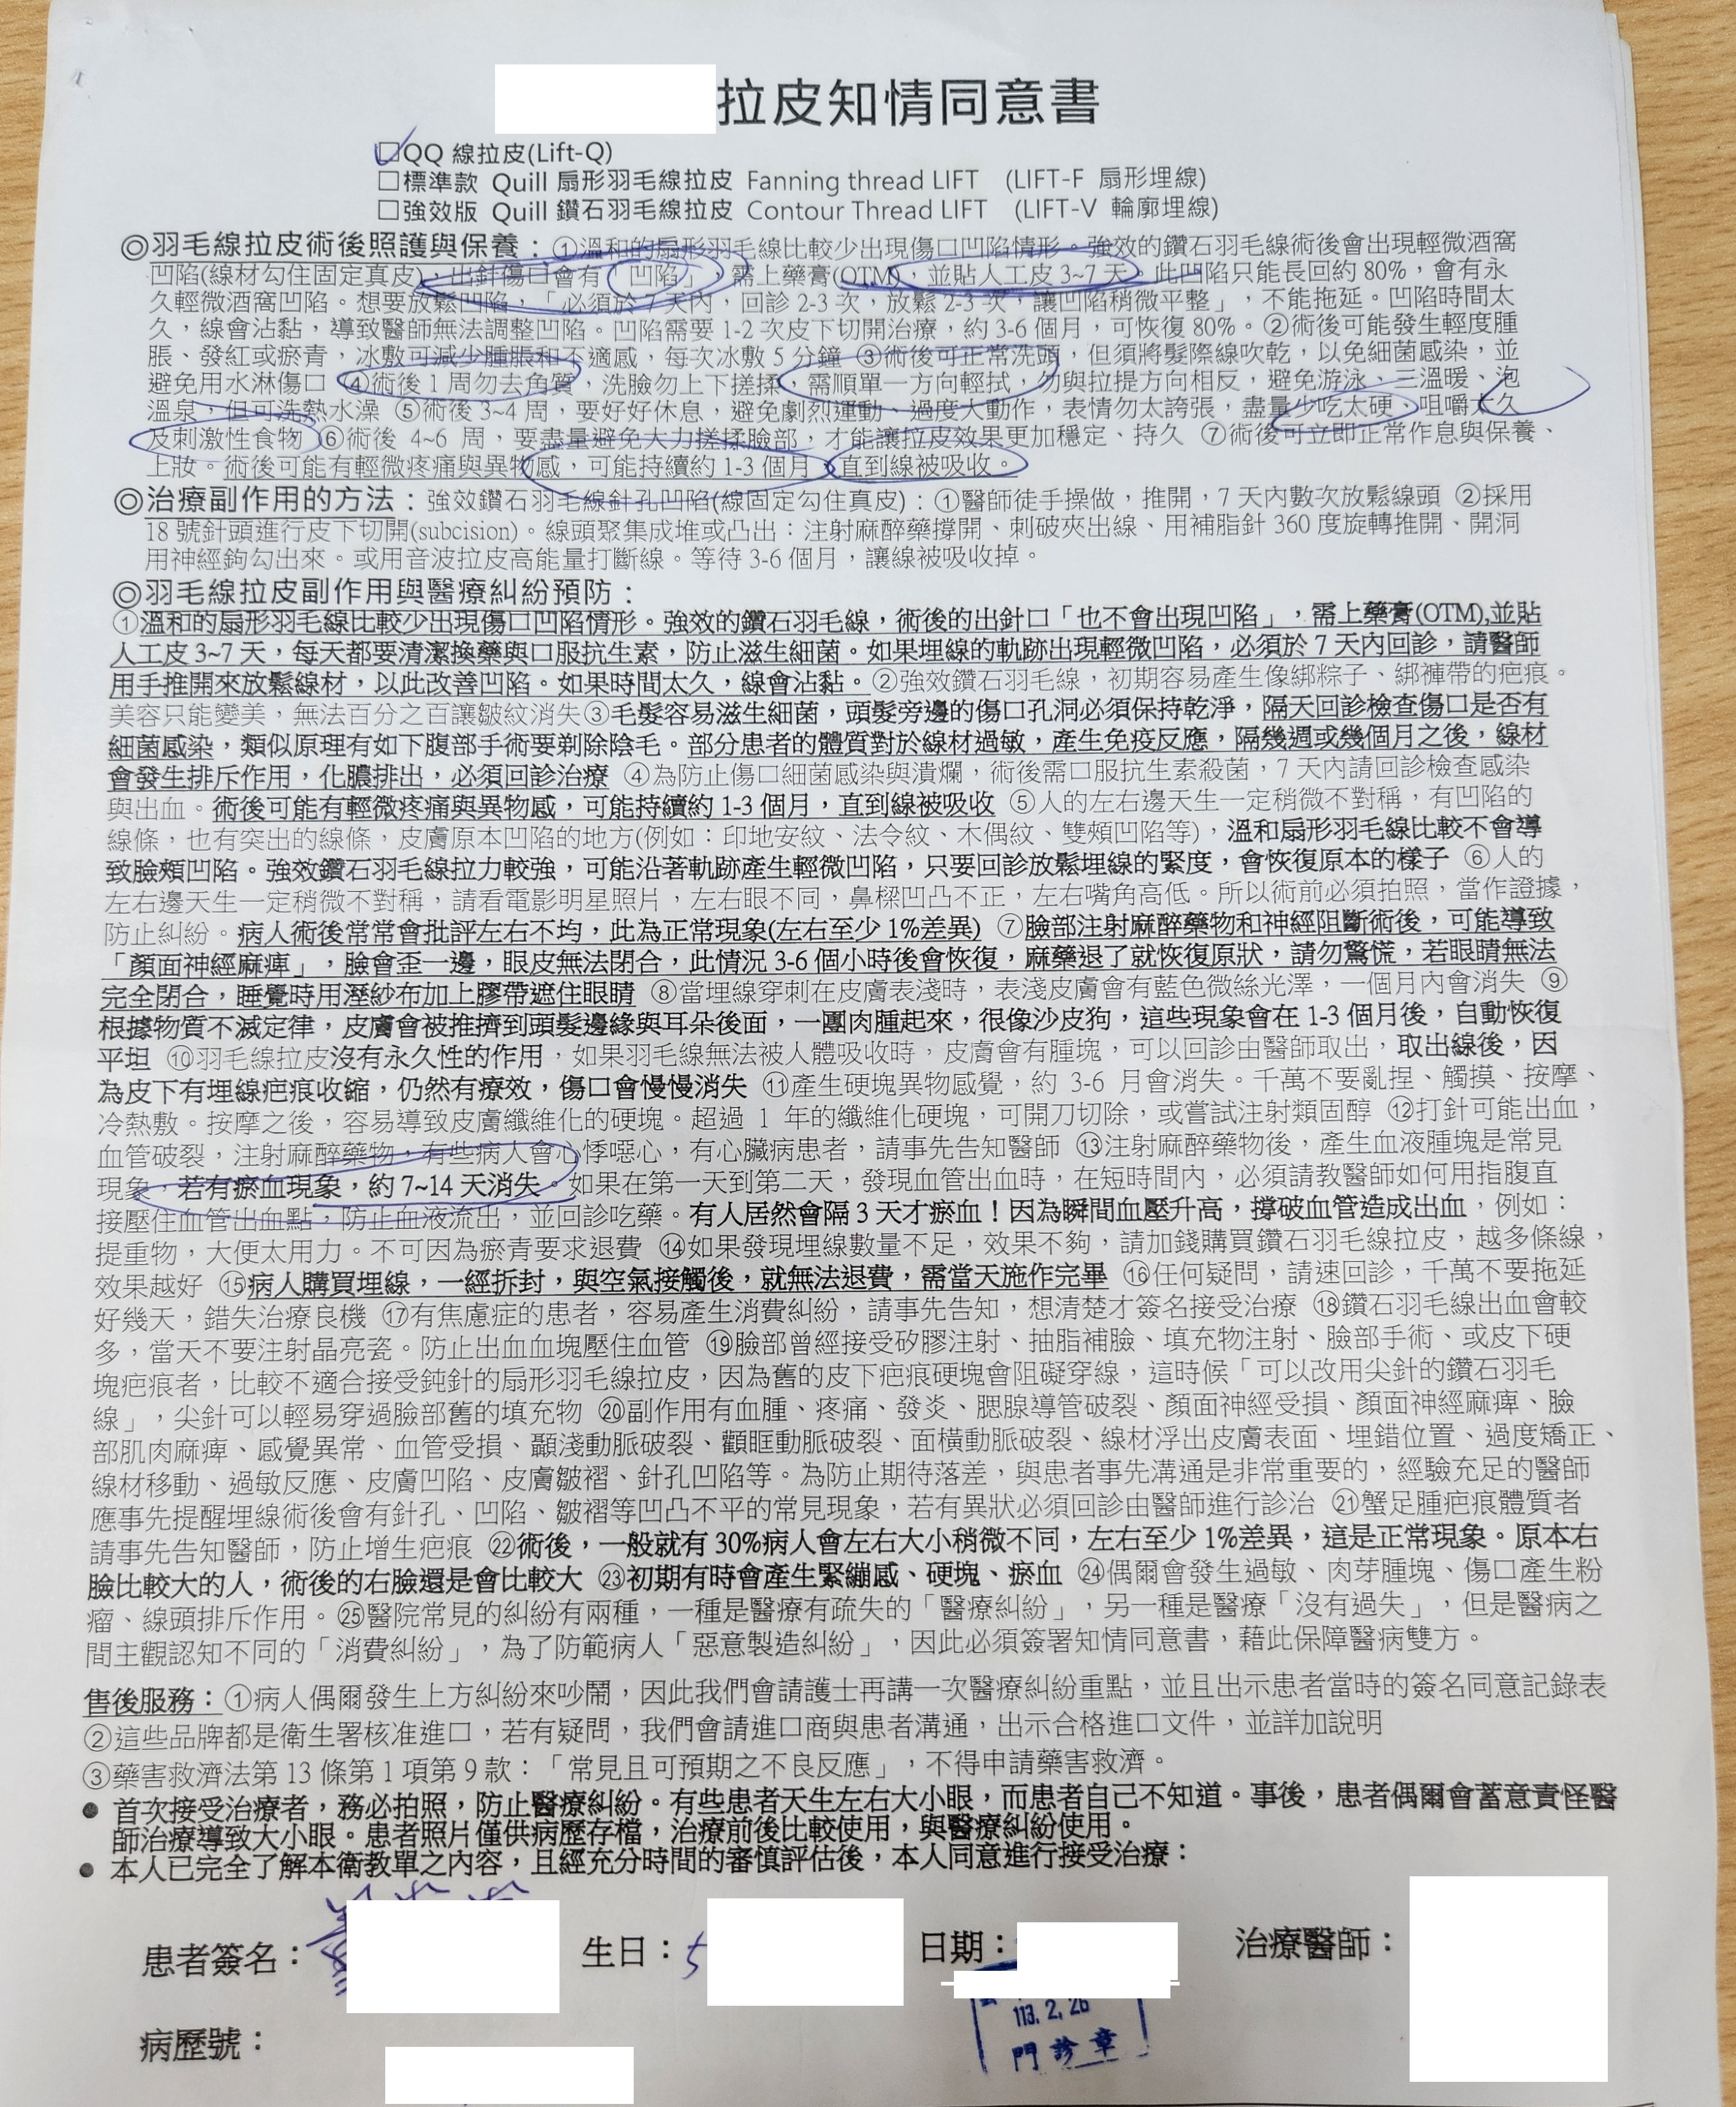 拉皮知情同意書
□QQ 線拉皮(Lift-Q)
□標準款 Quill 扇形羽毛線拉皮 Fanning thread LIFT (LIFT-F 扇形埋線)
□強效版 Quill 鑽石羽毛線拉皮 Contour Thread LIFT (LIFT-V 輪廓埋線)
◎羽毛線拉皮術後照護與保養：①溫和的扇形羽毛線比較少出現傷口凹陷情形。強效的鑽石羽毛線術後會出現輕微酒窩
凹陷(線材勾住固定真皮)，出針傷口會有「凹陷」，需上藥膏(OTM)，並貼人工皮 3~7 天。此凹陷只能長回約 80%，會有永
久輕微酒窩凹陷。想要放鬆凹陷，「必須於 7 天內，回診 2-3 次，放鬆 2-3 次，讓凹陷稍微平整」，不能拖延。凹陷時間太
久，線會沾黏，導致醫師無法調整凹陷。凹陷需要 1-2 次皮下切開治療，約 3-6 個月，可恢復 80%。②術後可能發生輕度腫
脹、發紅或瘀青，冰敷可減少腫脹和不適感，每次冰敷 5 分鐘 ③術後可正常洗頭，但須將髮際線吹乾，以免細菌感染，並
避免用水淋傷口 ④術後 1 周勿去角質，洗臉勿上下搓揉，需順單一方向輕拭，勿與拉提方向相反，避免游泳、三溫暖、泡
溫泉，但可洗熱水澡 ⑤術後 3~4 周，要好好休息，避免劇烈運動、過度大動作，表情勿太誇張，盡量少吃太硬、咀嚼太久
及刺激性食物 ⑥術後 4~6 周，要盡量避免大力搓揉臉部，才能讓拉皮效果更加穩定、持久 ⑦術後可立即正常作息與保養、
上妝。術後可能有輕微疼痛與異物感，可能持續約 1-3 個月，直到線被吸收。
◎治療副作用的方法：強效鑽石羽毛線針孔凹陷(線固定勾住真皮)：①醫師徒手操做，推開，7 天內數次放鬆線頭 ②採用
18 號針頭進行皮下切開(subcision)。線頭聚集成堆或凸出：注射麻醉藥撐開、刺破夾出線、用補脂針 360 度旋轉推開、開洞
用神經鉤勾出來。或用音波拉皮高能量打斷線。等待 3-6 個月，讓線被吸收掉。
◎羽毛線拉皮副作用與醫療糾紛預防：
①溫和的扇形羽毛線比較少出現傷口凹陷情形。強效的鑽石羽毛線，術後的出針口「也不會出現凹陷」，需上藥膏(OTM),並貼
人工皮 3~7 天，每天都要清潔換藥與口服抗生素，防止滋生細菌。如果埋線的軌跡出現輕微凹陷，必須於 7 天內回診，請醫師
用手推開來放鬆線材，以此改善凹陷。如果時間太久，線會沾黏。②強效鑽石羽毛線，初期容易產生像綁粽子、綁褲帶的疤痕。
美容只能變美，無法百分之百讓皺紋消失③毛髮容易滋生細菌，頭髮旁邊的傷口孔洞必須保持乾淨，隔天回診檢查傷口是否有
細菌感染，類似原理有如下腹部手術要剃除陰毛。部分患者的體質對於線材過敏，產生免疫反應，隔幾週或幾個月之後，線材
會發生排斥作用，化膿排出，必須回診治療 ④為防止傷口細菌感染與潰爛，術後需口服抗生素殺菌，7 天內請回診檢查感染
與出血。術後可能有輕微疼痛與異物感，可能持續約 1-3 個月，直到線被吸收 ⑤人的左右邊天生一定稍微不對稱，有凹陷的
線條，也有突出的線條，皮膚原本凹陷的地方(例如：印地安紋、法令紋、木偶紋、雙頰凹陷等)，溫和扇形羽毛線比較不會導
致臉頰凹陷。強效鑽石羽毛線拉力較強，可能沿著軌跡產生輕微凹陷，只要回診放鬆埋線的緊度，會恢復原本的樣子 ⑥人的
左右邊天生一定稍微不對稱，請看電影明星照片，左右眼不同，鼻樑凹凸不正，左右嘴角高低。所以術前必須拍照，當作證據，
防止糾紛。病人術後常常會批評左右不均，此為正常現象(左右至少 1%差異) ⑦臉部注射麻醉藥物和神經阻斷術後，可能導致
「顏面神經麻痺」，臉會歪一邊，眼皮無法閉合，此情況 3-6 個小時後會恢復，麻藥退了就恢復原狀，請勿驚慌，若眼睛無法
完全閉合，睡覺時用溼紗布加上膠帶遮住眼睛 ⑧當埋線穿刺在皮膚表淺時，表淺皮膚會有藍色微絲光澤，一個月內會消失 ⑨
根據物質不滅定律，皮膚會被推擠到頭髮邊緣與耳朵後面，一團肉腫起來，很像沙皮狗，這些現象會在 1-3 個月後，自動恢復
平坦 ⑩羽毛線拉皮沒有永久性的作用，如果羽毛線無法被人體吸收時，皮膚會有腫塊，可以回診由醫師取出，取出線後，因
為皮下有埋線疤痕收縮，仍然有療效，傷口會慢慢消失 ⑪產生硬塊異物感覺，約 3-6 月會消失。千萬不要亂捏、觸摸、按摩、
冷熱敷。按摩之後，容易導致皮膚纖維化的硬塊。超過 1 年的纖維化硬塊，可開刀切除，或嘗試注射類固醇 ⑫打針可能出血，
血管破裂，注射麻醉藥物，有些病人會心悸噁心，有心臟病患者，請事先告知醫師 ⑬注射麻醉藥物後，產生血液腫塊是常見
現象，若有瘀血現象，約 7~14 天消失。如果在第一天到第二天，發現血管出血時，在短時間內，必須請教醫師如何用指腹直
接壓住血管出血點，防止血液流出，並回診吃藥。有人居然會隔 3 天才瘀血！因為瞬間血壓升高，撐破血管造成出血，例如：
提重物，大便太用力。不可因為瘀青要求退費 ⑭如果發現埋線數量不足，效果不夠，請加錢購買鑽石羽毛線拉皮，越多條線，
效果越好 ⑮病人購買埋線，一經拆封，與空氣接觸後，就無法退費，需當天施作完畢 ⑯任何疑問，請速回診，千萬不要拖延
好幾天，錯失治療良機 ⑰有焦慮症的患者，容易產生消費糾紛，請事先告知，想清楚才簽名接受治療 ⑱鑽石羽毛線出血會較
多，當天不要注射晶亮瓷。防止出血血塊壓住血管 ⑲臉部曾經接受矽膠注射、抽脂補臉、填充物注射、臉部手術、或皮下硬
塊疤痕者，比較不適合接受鈍針的扇形羽毛線拉皮，因為舊的皮下疤痕硬塊會阻礙穿線，這時候「可以改用尖針的鑽石羽毛
線」，尖針可以輕易穿過臉部舊的填充物 ⑳副作用有血腫、疼痛、發炎、腮腺導管破裂、顏面神經受損、顏面神經麻痺、臉
部肌肉麻痺、感覺異常、血管受損、顳淺動脈破裂、顴眶動脈破裂、面橫動脈破裂、線材浮出皮膚表面、埋錯位置、過度矯正、
線材移動、過敏反應、皮膚凹陷、皮膚皺褶、針孔凹陷等。為防止期待落差，與患者事先溝通是非常重要的，經驗充足的醫師
應事先提醒埋線術後會有針孔、凹陷、皺褶等凹凸不平的常見現象，若有異狀必須回診由醫師進行診治 ㉑蟹足腫疤痕體質者
請事先告知醫師，防止增生疤痕 ㉒術後，一般就有 30%病人會左右大小稍微不同，左右至少 1%差異，這是正常現象。原本右
臉比較大的人，術後的右臉還是會比較大 ㉓初期有時會產生緊繃感、硬塊、瘀血 ㉔偶爾會發生過敏、肉芽腫塊、傷口產生粉
瘤、線頭排斥作用。㉕醫院常見的糾紛有兩種，一種是醫療有疏失的「醫療糾紛」，另一種是醫療「沒有過失」，但是醫病之
間主觀認知不同的「消費糾紛」，為了防範病人「惡意製造糾紛」，因此必須簽署知情同意書，藉此保障醫病雙方。
售後服務：①病人偶爾發生上方糾紛來吵鬧，因此我們會請護士再講一次醫療糾紛重點，並且出示患者當時的簽名同意記錄表
②這些品牌都是衛生署核准進口，若有疑問，我們會請進口商與患者溝通，出示合格進口文件，並詳加說明
③藥害救濟法第 13 條第 1 項第 9 款：「常見且可預期之不良反應」，不得申請藥害救濟。
● 首次接受治療者，務必拍照，防止醫療糾紛。有些患者天生左右大小眼，而患者自己不知道。事後，患者偶爾會蓄意責怪醫
師治療導致大小眼。患者照片僅供病歷存檔，治療前後比較使用，與醫療糾紛使用。
● 本人已完全了解本衛教單之內容，且經充分時間的審慎評估後，本人同意進行接受治療：
患者簽名： 生日：5 日期： 治療醫師：
113. 2. 26
門診章
病歷號：